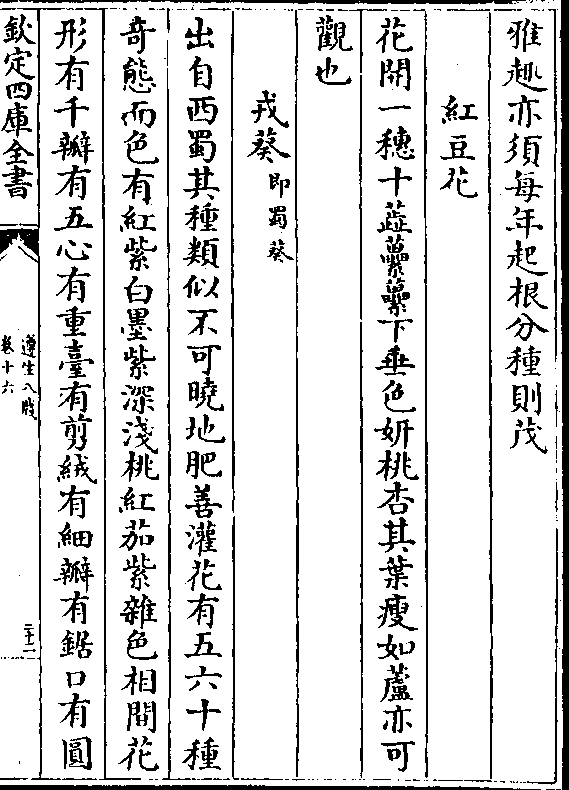 雅趣亦須每年起根分種則茂
紅豆花
花開一穗十蕋蘽蘽下垂色妍桃杏其葉瘦如蘆亦可
觀也
戎葵即蜀葵
出自西蜀其種類似不可曉地肥善灌花有五六十種
奇態而色有紅紫白墨紫深淺桃紅茄紫雜色相間花
形有千瓣有五心有重臺有剪絨有細瓣有鋸口有圓
欽定四庫全書
遵生八牋
卷十六